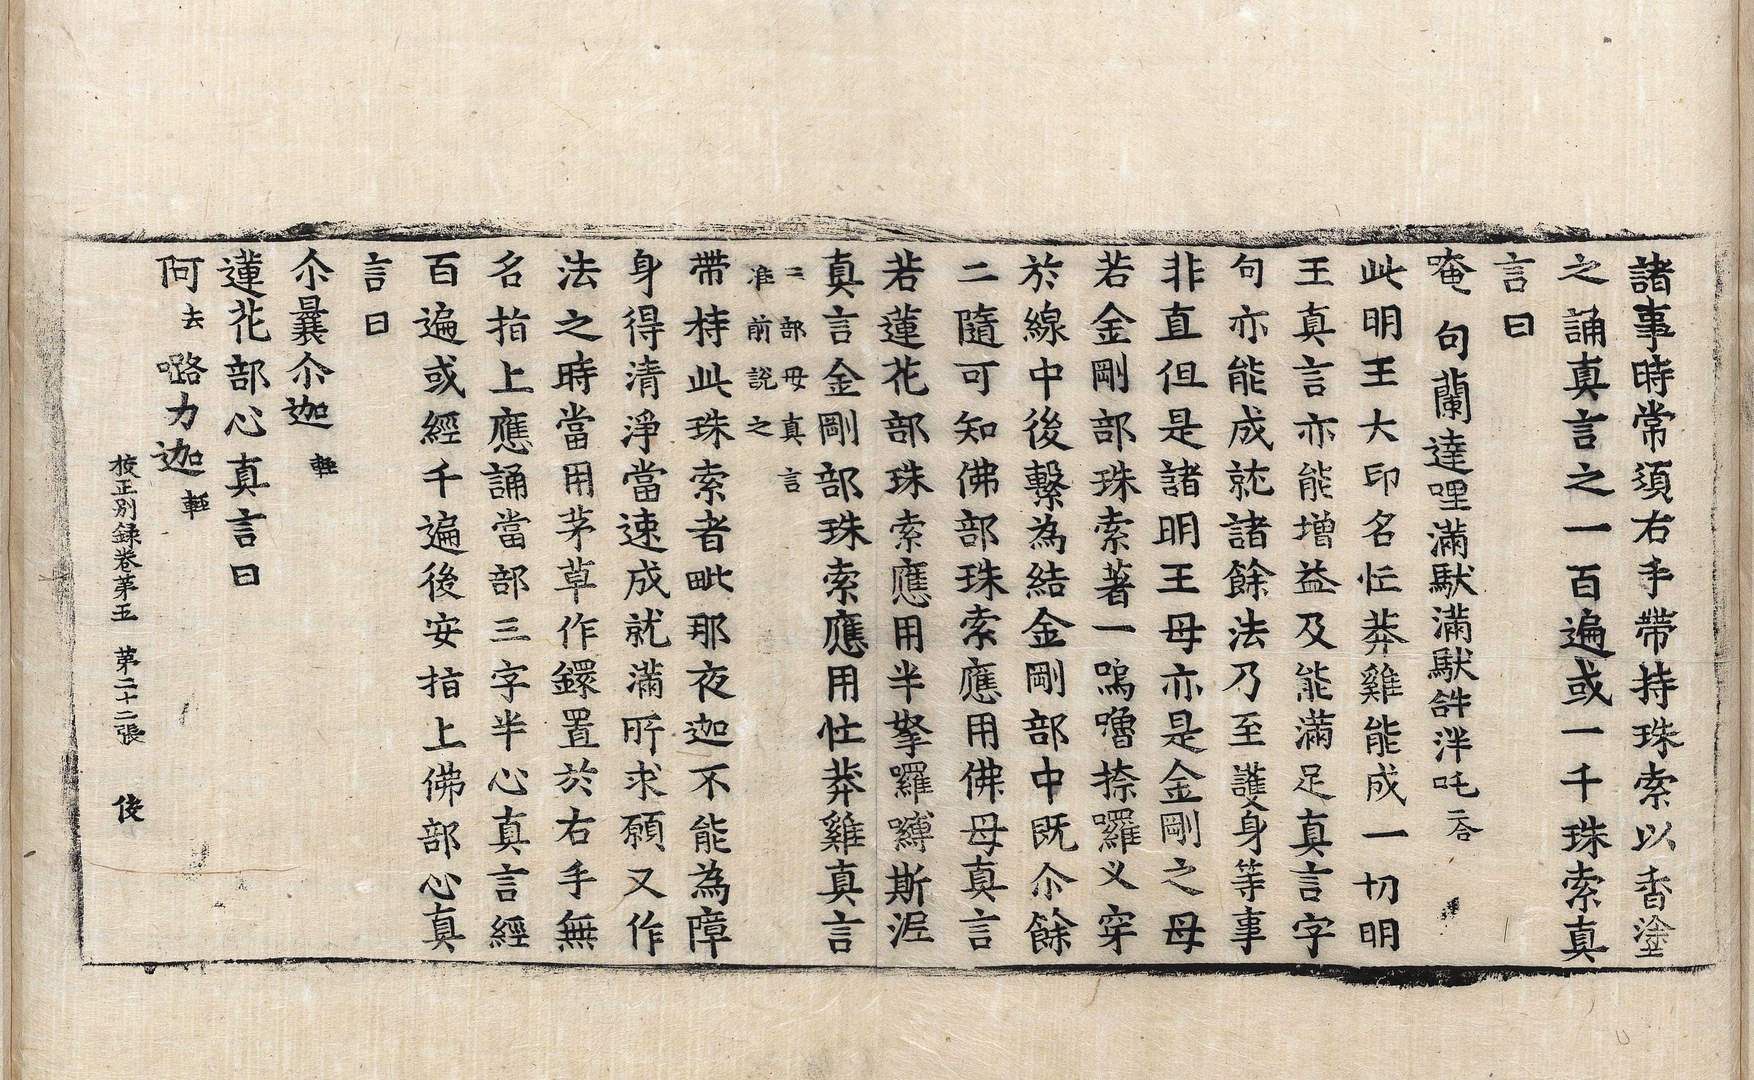 諸事時常須右手帶持珠索以香塗
之誦真言之一百遍或一千珠索真
言曰
唵 句蘭達哩滿馱滿馱𤙖泮吒二合
此明王大印名忙莽雞能成一切明
王真言亦能增益及能滿足真言字
句亦能成就諸餘法乃至護身等事
非直但是諸明王母亦是金剛之母
若金剛部珠索著一嗚嚕捺囉叉穿
於線中後繫為結金剛部中既尒餘
二隨可知佛部珠索應用佛母真言
若蓮花部珠索應用半拏囉嚩斯泥
真言金剛部珠索應用忙莽雞真言
二部母真言
准前説之
帶持此珠索者毗那夜迦不能為障
身得清淨當速成就滿所求願又作
法之時當用茅草作鐶置於右手無
名指上應誦當部三字半心真言經
百遍或經千遍後安指上佛部心真
言曰
尒曩尒迦輕
蓮花部心真言曰
阿去嚧力迦輕
校正別録卷第五 第二十二張 俊